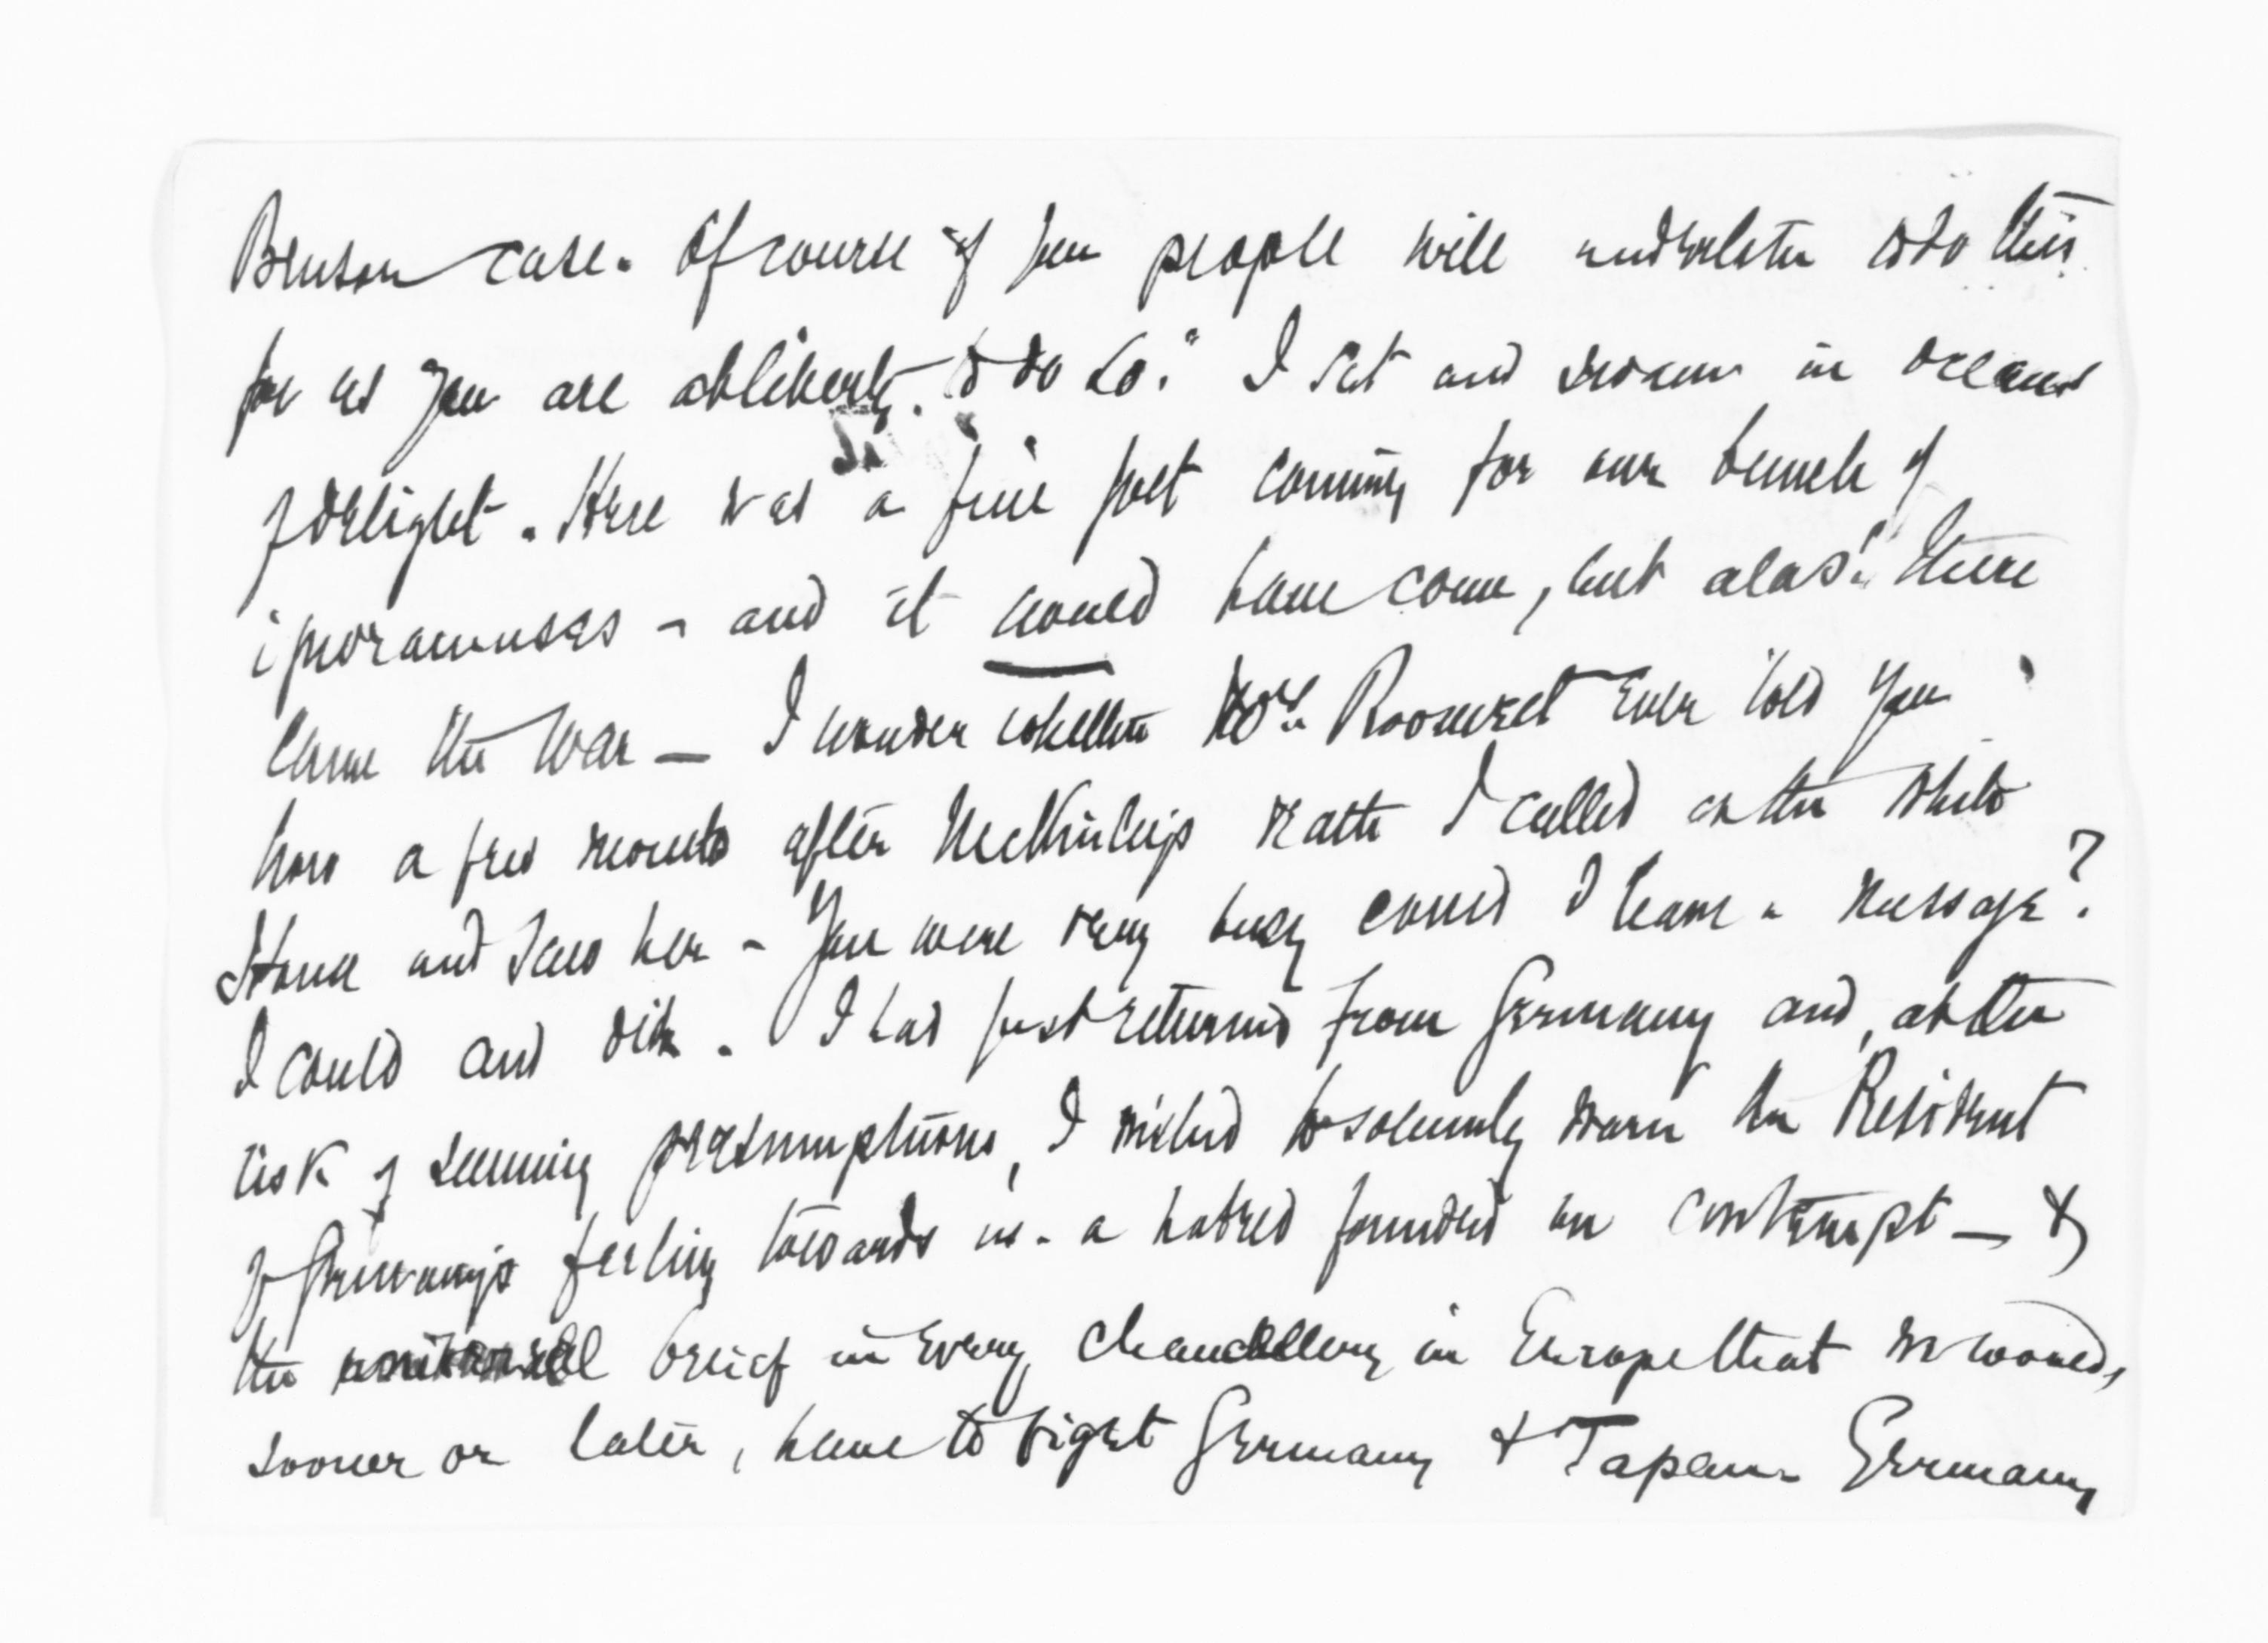 Benson case. Of course if you people will undertake to do this
for us you are at liberty to do so." I sat and swam in oceans
of delight. Here was a fine jolt coming for our bunch of
ignoramuses - and it would have come, but alas! there
came the War — I wonder whether Mrs. Roosevelt ever told you
how a few months after McKinley's death I called at the White
House and saw her - You were very busy could I leave a message?
I could and did. I had just returned from Germany and, at the
risk of seeming presumptuous, I wished to solemnly warn the President
of Germany's feeling towards us - a hatred founded on contempt — &
the universal belief in every chancellery in Europe that we would,
sooner or later, have to fight Germany & Japan. Germany